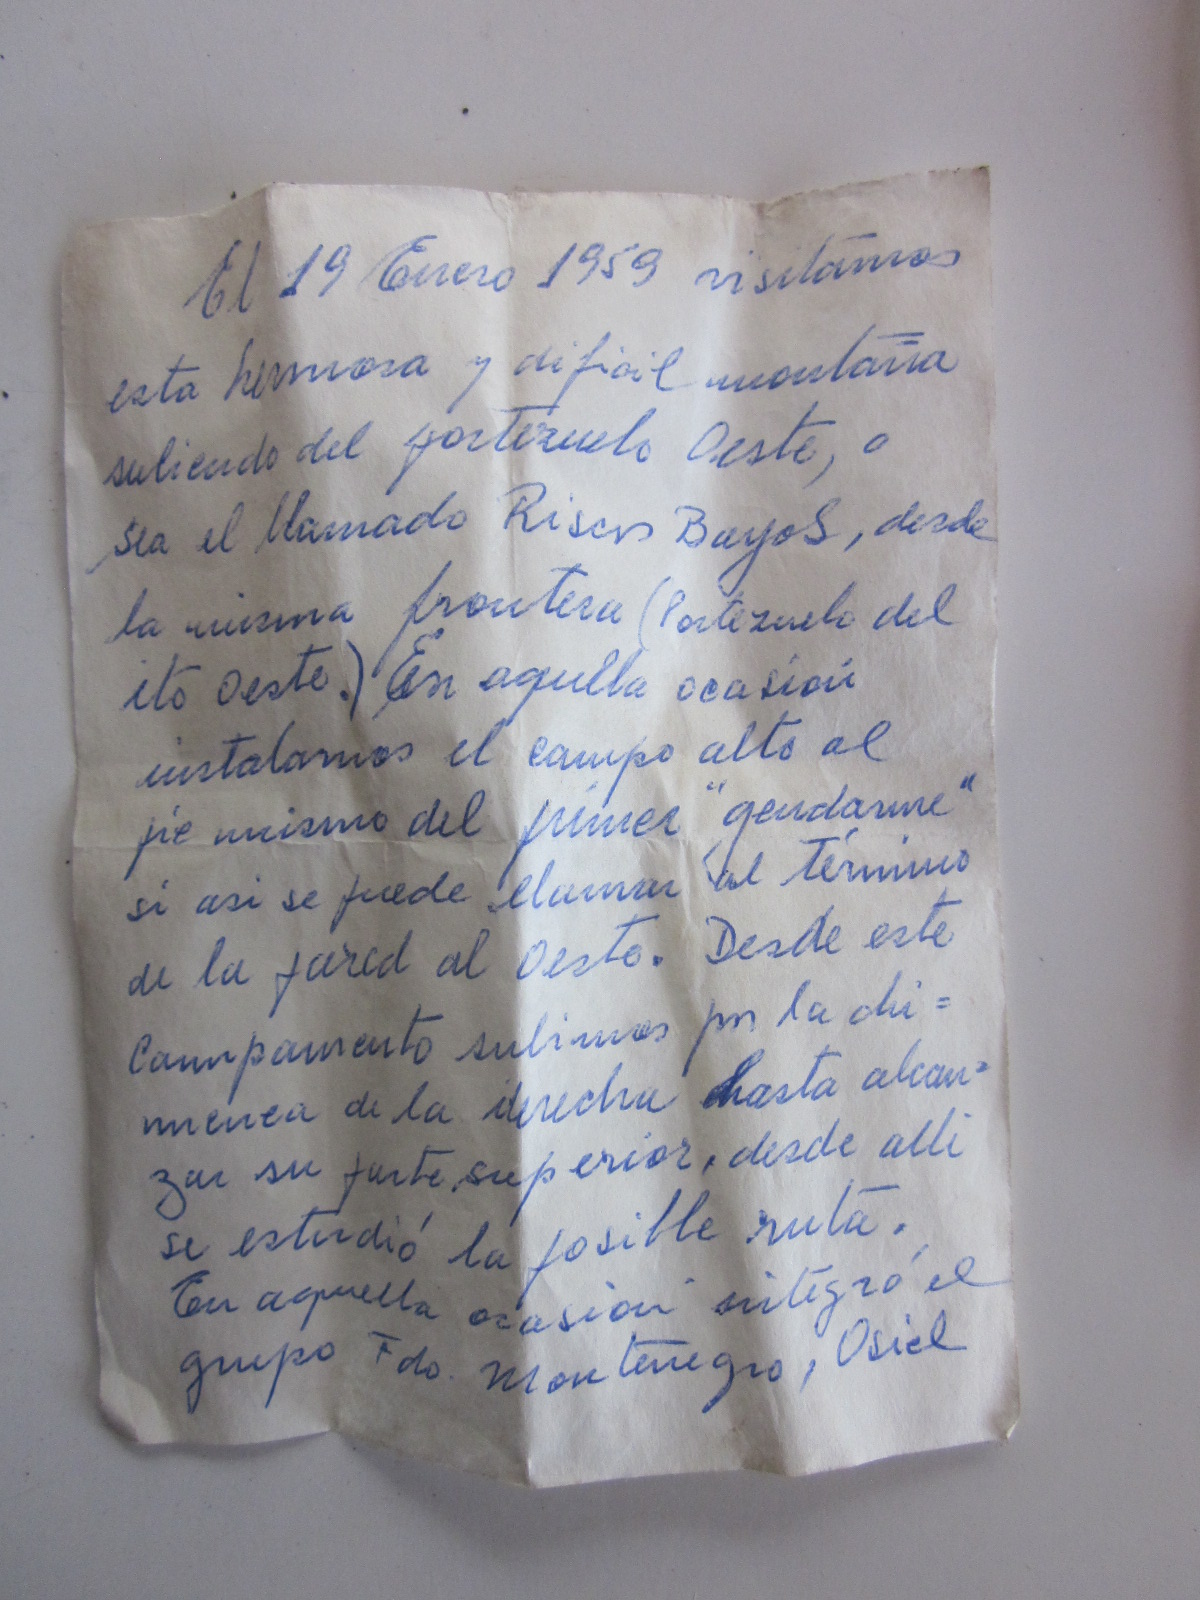 El 19 Enero 1959 visitámos
esta hermosa y dificil montaña
subiendo del portezuelo Oeste, o
sea el llamado Riscos Bayos, desde
la misma frontera (Portezuelo del
ito Oeste.) En aquella ocasión
instalamos el campo alto al
pie mismo del primer "gendarme"
si asi se puede llamar al término
de la pared al Oeste. Desde este
Campamento subimos por la chi=
menea de la derecha hasta alcan=
zar su parte superior, desde alli
se estudió la posible ruta.
En aquella ocasión integró el
grupo Fdo. Montenegro, Osiel